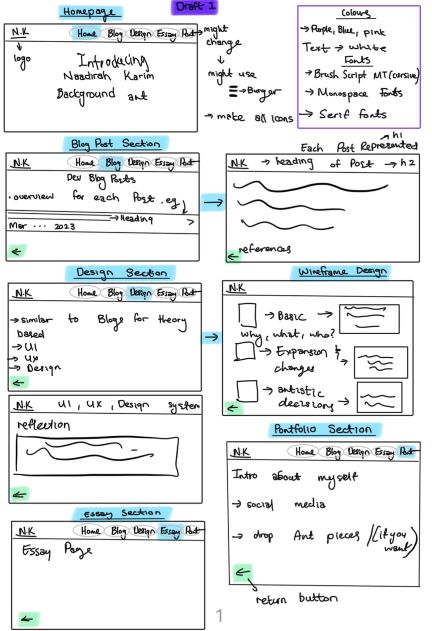 Draft 1
Homepage
N.K
Home Blog Design Essay Port
logo
Introducing
Naadirah Karim
Background art
might
change
might use
Burger
make all icons
Colours
→ Purple, Blue, pink
Text → white
Fonts
→ Brush Script MT (cursive)
→ Monospace fonts
→ Serif fonts
Blog Post Section
N.K
Home Blog Design Essay Port
Dev Blog Posts
• overview for each Post .eg
→ Heading
Mar ... 2023
>
Each Post Represented
h1
N.K → heading of Post → h2
references
Design Section
N.K
Home Blog Design Essay Port
→ similar to Blogs for theory
based
→ UI
→ UX
→ Design
Wireframe Design
N.K
→ Basic →
why, what, who?
→ Expansion &
changes
→ artistic
decisions →
N.K UI, UX, Design system
reflection
Portfolio Section
N.K
Home Blog Design Essay Port
Intro about myself
→ social media
→ drop Art pieces /(if you
want)
return button
Essay Section
N.K
Home Blog Design Essay Port
Essay Page
1